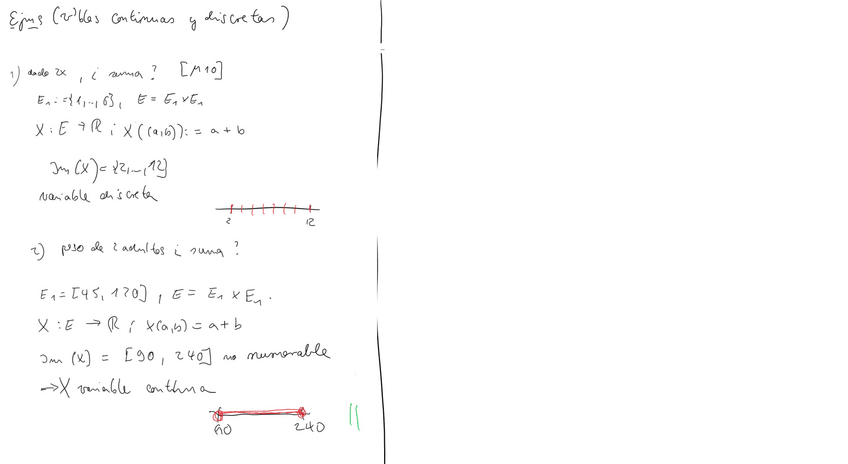 Ejms (v²bles continuas y discretas)
1) dado 2x, ¿ suma? [M10]
E₁:={1,..,6}, E = E₁×E₁
X : E → ℝ ; X((a,b)):= a + b
Im (X)= {2,..,12}
variable discreta
2 12
2) peso de 2 adultos ¿ suma?
E₁=[45, 120], E = E₁ × E₁.
X : E → ℝ ; X(a,b) = a + b
Im (X) = [90, 240] no numerable
→ X variable continua
90 240